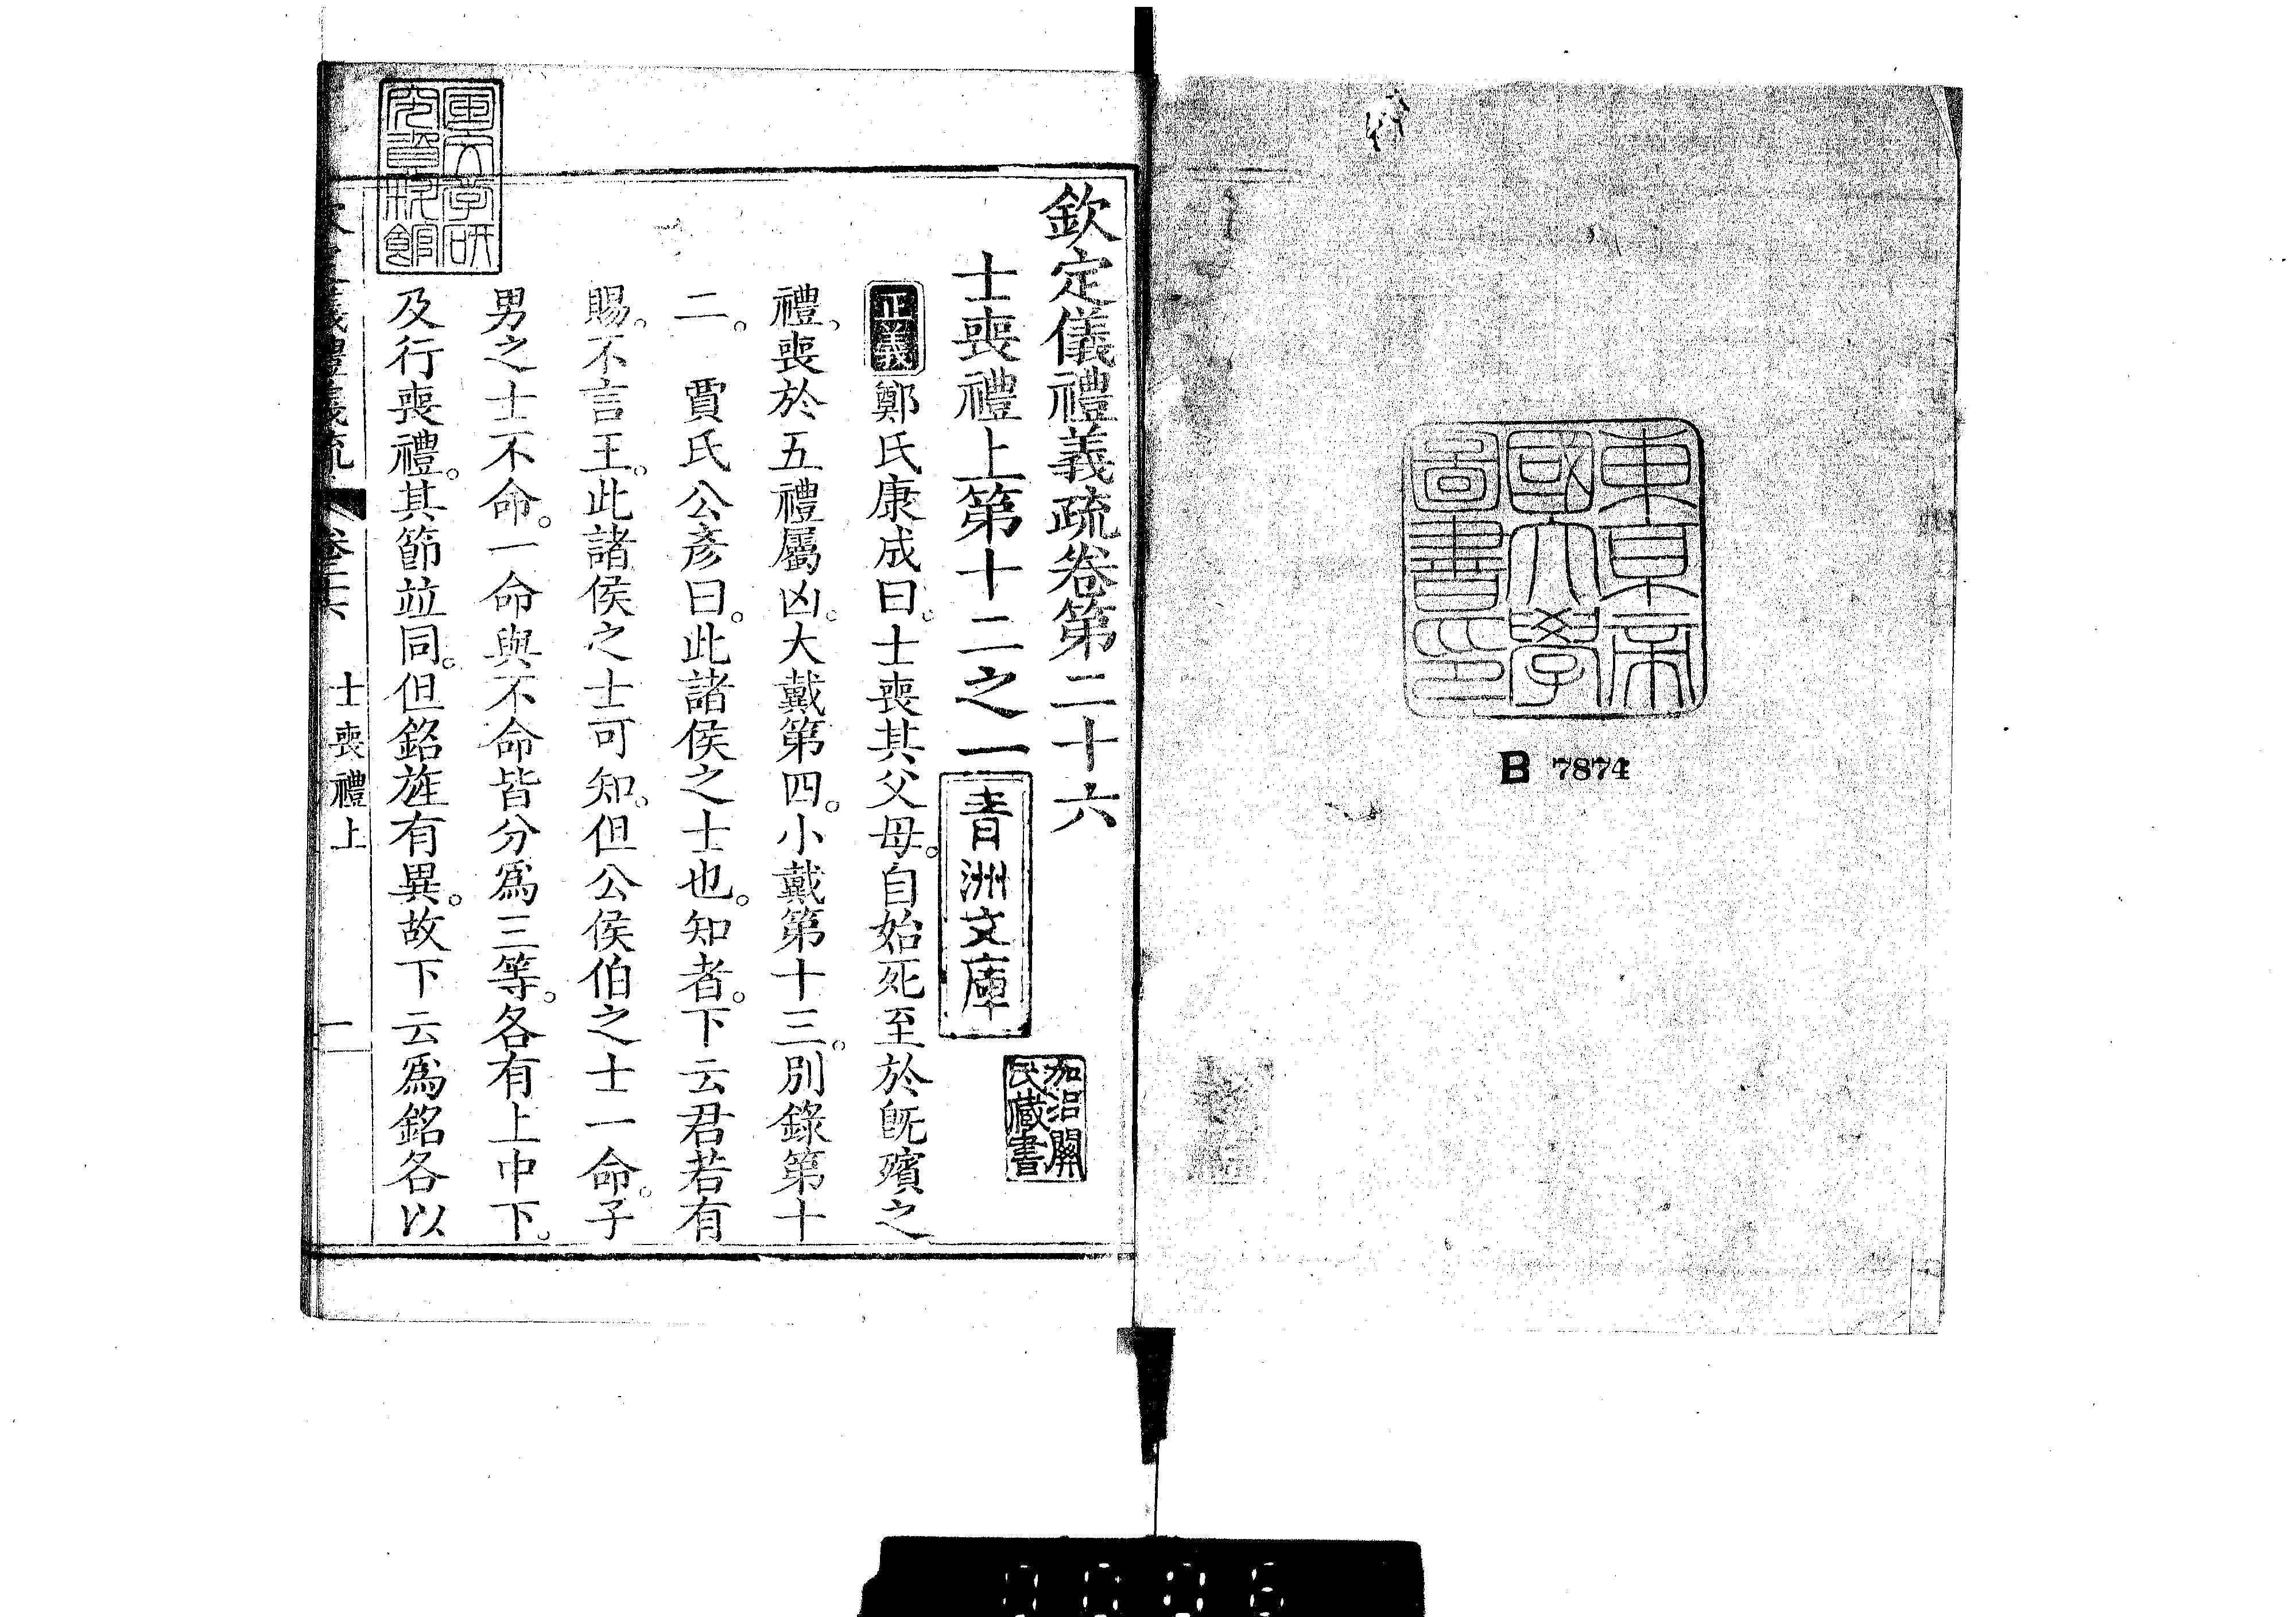 東京帝
國大學
圖書印
B 7874
欽定儀禮義疏卷第二十六
士喪禮上第十二之一
青洲文庫
正義 鄭氏康成曰。士喪其父母。自始死至於旣殯之
禮。喪於五禮屬凶。大戴第四。小戴第十三。別錄第十
二。 賈氏公彥曰。此諸侯之士也。知者。下云君若有
賜。不言王。此諸侯之士可知。但公侯伯之士一命。子
男之士不命。一命與不命皆分爲三等。各有上中下。
及行喪禮。其節竝同。但銘旌有異。故下云爲銘各以
士喪禮上
一